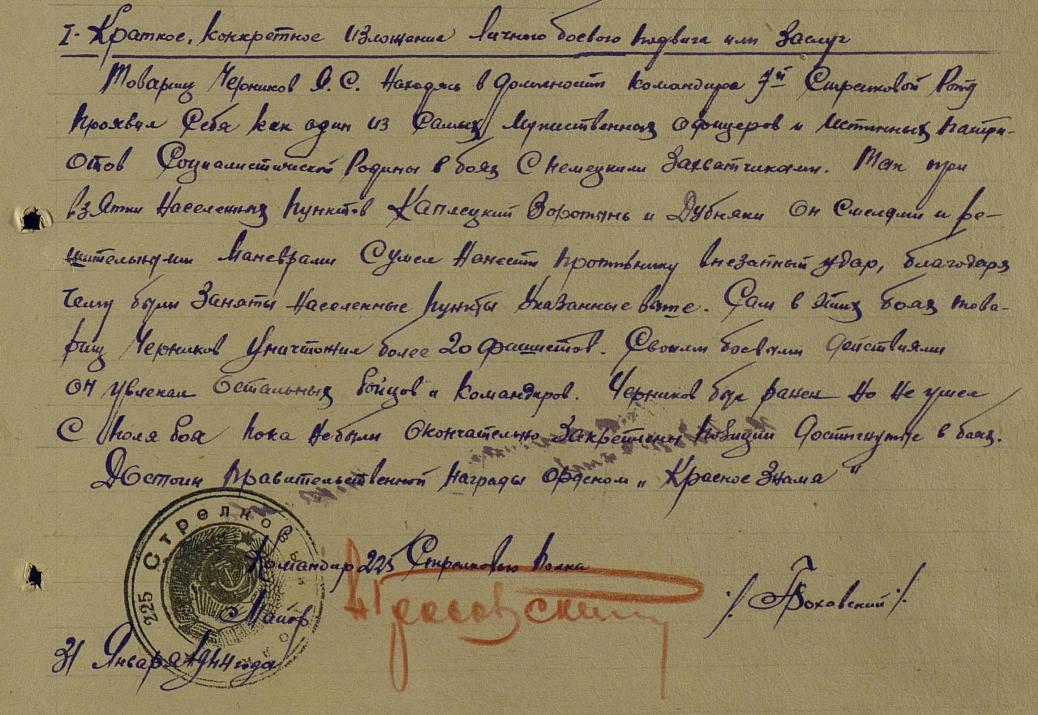 I. Краткое, конкретное изложение личного боевого подвига или заслуг
Товарищ Черников А.С. находясь в должности командира 7й Стрелковой Роты
проявил себя как один из самых мужественных офицеров и истинных патри-
отов Социалистической Родины в боях с немецкими захватчиками. Так при
взятии населенных пунктов Каплецкий Воротынь и Дубняки он смелыми и ре-
шительными маневрами сумел нанести противнику внезапный удар, благодаря
чему были заняты населенные пункты указанные выше. Сам в этих боях това-
рищ Черников уничтожил более 20 фашистов. Своими боевыми действиями
он увлекал остальных бойцов и командиров. Черников был ранен но не ушел
с поля боя пока не были окончательно закреплены позиции достигнутые в боях.
Достоин правительственной награды орденом „Красное Знамя"
Командир 225 Стрелкового Полка
Майор
31 Января 1944 года
225 Стрелковый